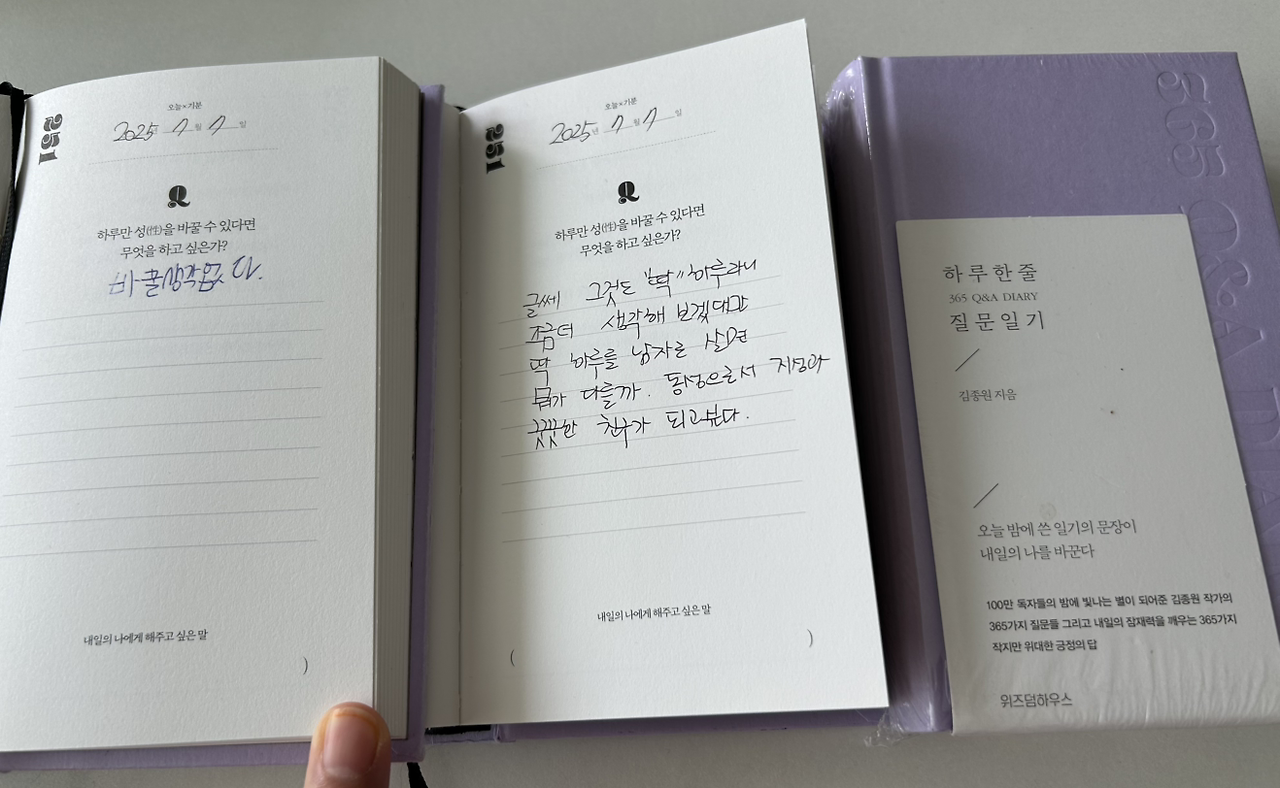 251
오늘×기분
2025년 7월 7일
Q
하루만 성(性)을 바꿀 수 있다면
무엇을 하고 싶은가?
바꿀생각없다.
내일의 나에게 해주고 싶은 말
)
251
오늘×기분
2025년 7월 7일
Q
하루만 성(性)을 바꿀 수 있다면
무엇을 하고 싶은가?
글쎄 그것도 "딱" 하루라니
조금더 생각해 보겠대만
딱 하루를 남자로 살면
뭐가 다를까. 동성으로서 지성과
끈끈한 친구가 되고싶다.
내일의 나에게 해주고 싶은 말
( )
365 Q&A DIA
하루 한 줄
365 Q&A DIARY
질문 일기
김종원 지음
오늘 밤에 쓴 일기의 문장이
내일의 나를 바꾼다
100만 독자들의 밤에 빛나는 별이 되어준 김종원 작가의
365가지 질문들 그리고 내일의 잠재력을 깨우는 365가지
작지만 위대한 긍정의 답
위즈덤하우스